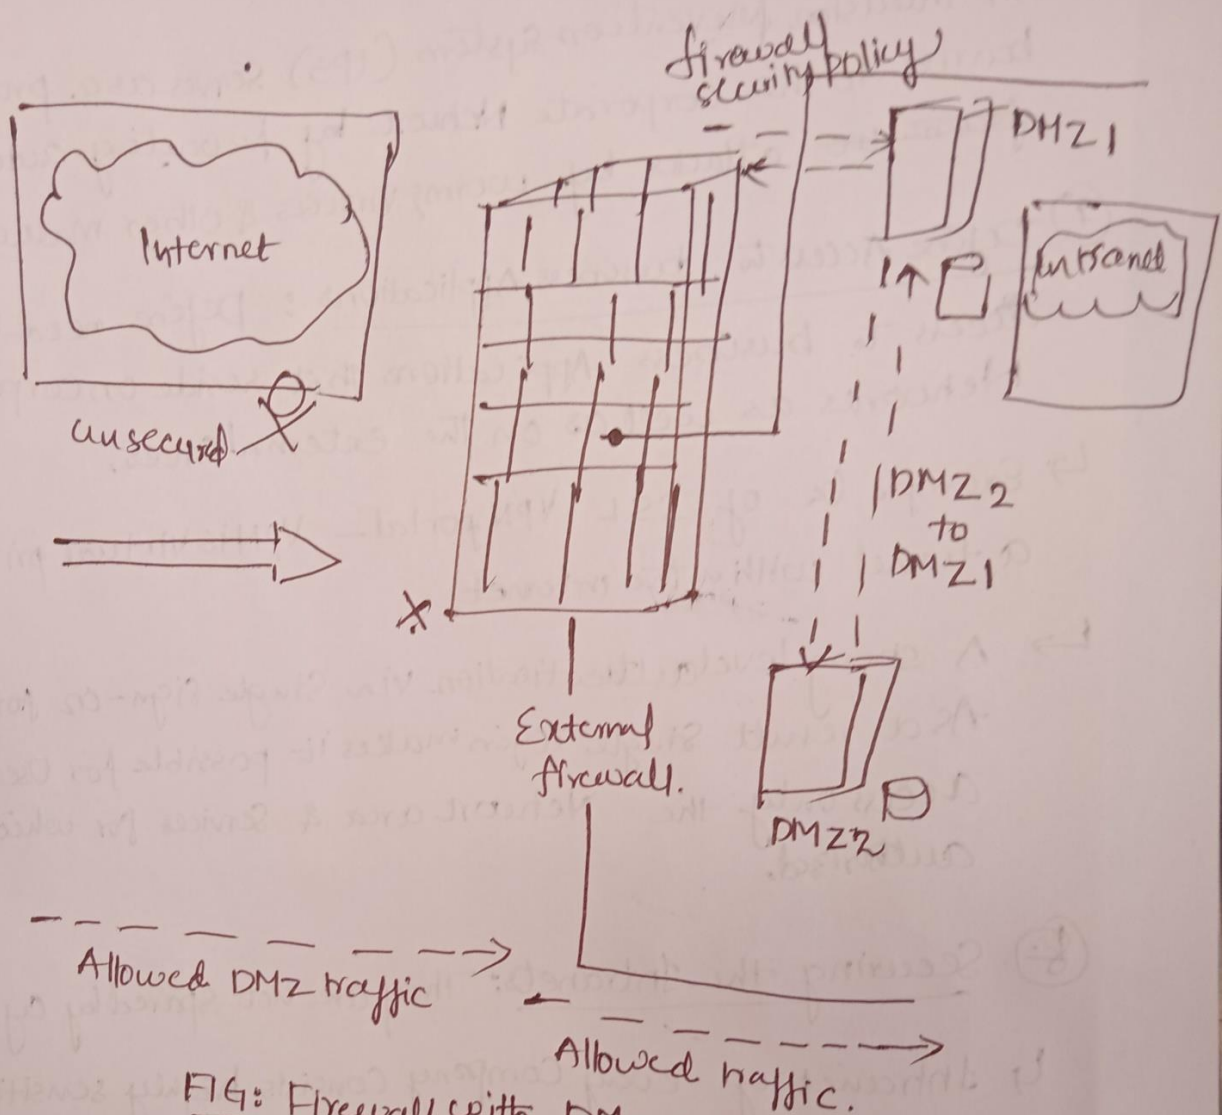 firewall
security policy
DMZ1
Internet
Intranet
unsecured
DMZ2
to
DMZ1
External
firewall.
DMZ2
Allowed DMZ traffic
Allowed traffic.
FIG: Firewall with DM